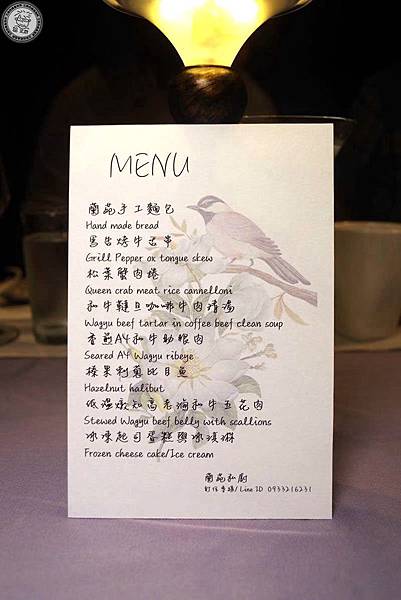 MENU
蘭苑手工麵包
Hand made bread
黑胡椒牛舌串
Grill Pepper ox tongue skew
松葉蟹肉捲
Queen crab meat rice cannelloni
和牛韃旦咖啡牛肉清湯
Wagyu beef tartar in coffee beef clean soup
香煎A4和牛肋眼肉
Seared A4 Wagyu ribeye
榛果刺蔥比目魚
Hazelnut halibut
低溫燉如意香滷和牛五花肉
Stewed Wagyu beef belly with scallions
冰凍起司蛋糕與冰淇淋
Frozen cheese cake/Ice cream
蘭苑私廚
訂位專線/ Line ID 0933216231